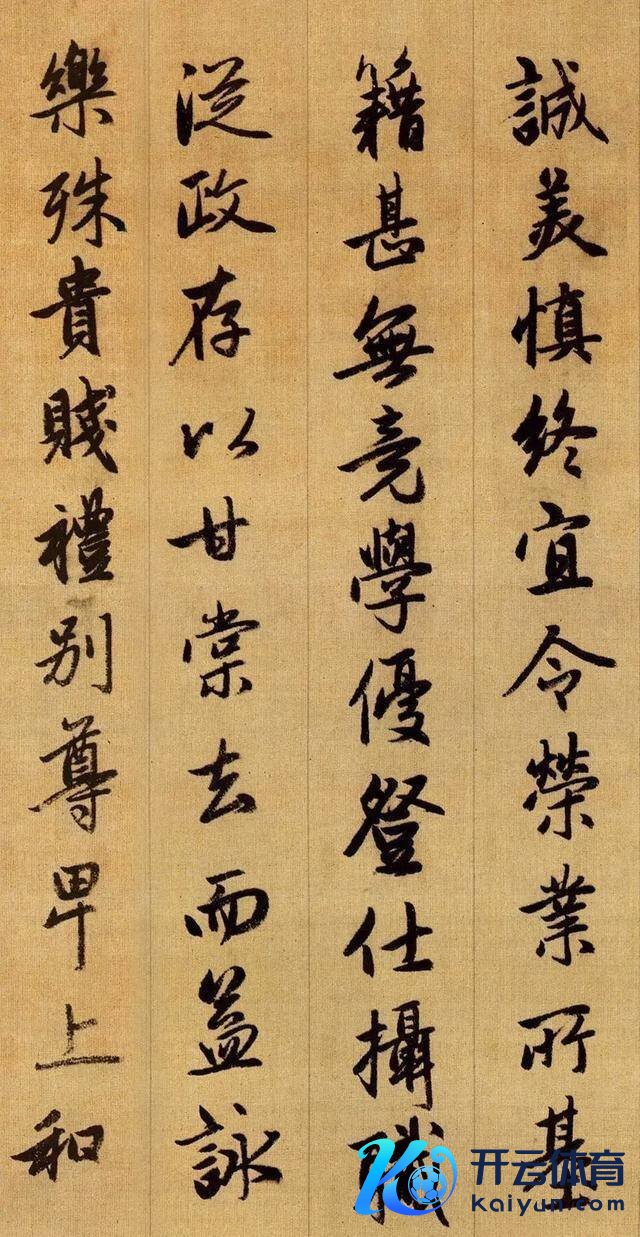 誠美慎終宜令榮業所基
籍甚無竟學優登仕攝職
從政存以甘棠去而益詠
樂殊貴賤禮別尊卑上和
开云体育
Kaiyun.com